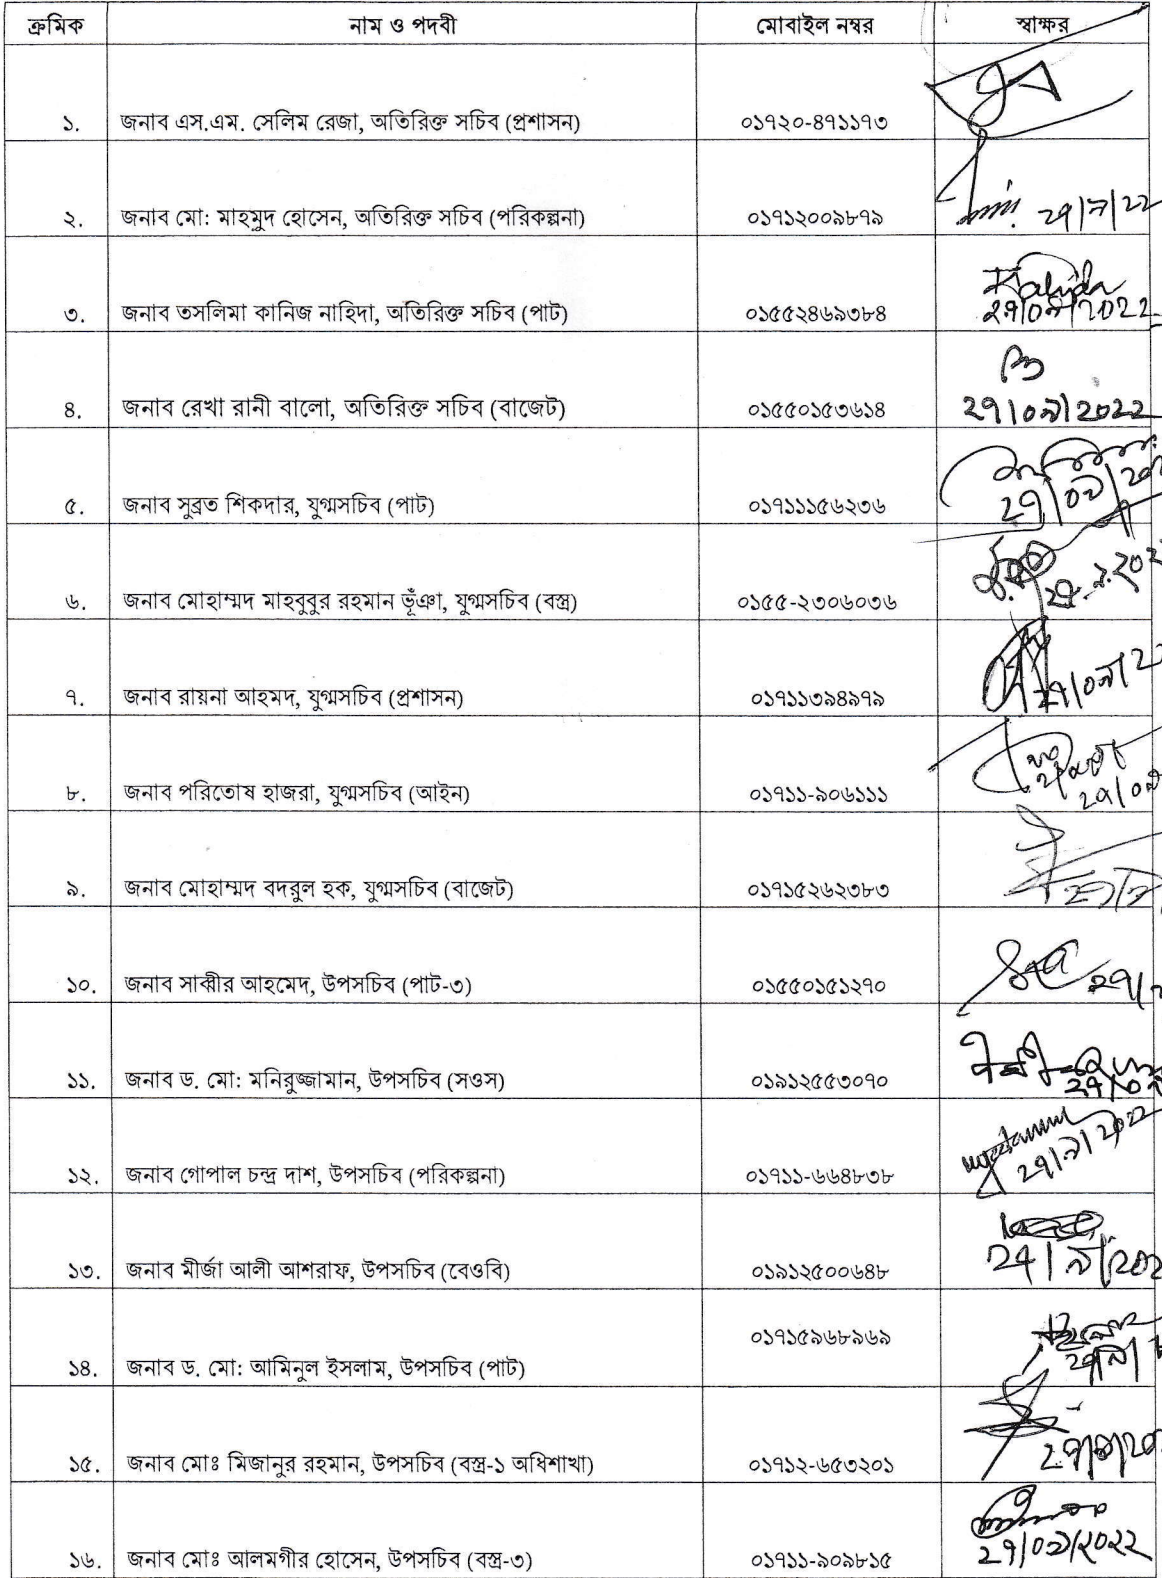 ক্রমিক নাম ও পদবী মোবাইল নম্বর স্বাক্ষর
১. জনাব এস.এম. সেলিম রেজা, অতিরিক্ত সচিব (প্রশাসন) ০১৭২০-৪৭১১৭৩
২. জনাব মো: মাহমুদ হোসেন, অতিরিক্ত সচিব (পরিকল্পনা) ০১৭১২০০৯৮৭৯ ২৭/৯/২২
৩. জনাব তসলিমা কানিজ নাহিদা, অতিরিক্ত সচিব (পাট) ০১৫৫২৪৬৯৩৮৪ Nahida
২৭/০৯/২০২২
৪. জনাব রেখা রানী বালো, অতিরিক্ত সচিব (বাজেট) ০১৫৫০১৫৩৬১৪ ২৭/০৯/২০২২
৫. জনাব সুব্রত শিকদার, যুগ্মসচিব (পাট) ০১৭১১১৫৬২৩৬
৬. জনাব মোহাম্মদ মাহবুবুর রহমান ভূঁঞা, যুগ্মসচিব (বস্ত্র) ০১৫৫-২৩০৬০৩৬
৭. জনাব রায়না আহমদ, যুগ্মসচিব (প্রশাসন) ০১৭১১৩৯৪৯৭৯
৮. জনাব পরিতোষ হাজরা, যুগ্মসচিব (আইন) ০১৭১১-৯০৬১১১
৯. জনাব মোহাম্মদ বদরুল হক, যুগ্মসচিব (বাজেট) ০১৭১৫২৬২৩৮৩
১০. জনাব সাব্বীর আহমেদ, উপসচিব (পাট-৩) ০১৫৫০১৫১২৭০
১১. জনাব ড. মো: মনিরুজ্জামান, উপসচিব (সওস) ০১৯১২৫৫৩০৭০
১২. জনাব গোপাল চন্দ্র দাশ, উপসচিব (পরিকল্পনা) ০১৭১১-৬৬৪৮৩৮ ২৭/৯/২০২২
১৩. জনাব মীর্জা আলী আশরাফ, উপসচিব (বেওবি) ০১৯১২৫০০৬৪৮
১৪. জনাব ড. মো: আমিনুল ইসলাম, উপসচিব (পাট) ০১৭১৫৯৬৮৯৬৯
১৫. জনাব মোঃ মিজানুর রহমান, উপসচিব (বস্ত্র-১ অধিশাখা) ০১৭১২-৬৫৩২০১
১৬. জনাব মোঃ আলমগীর হোসেন, উপসচিব (বস্ত্র-৩) ০১৭১১-৯০৯৮১৫ ২৭/০৯/২০২২